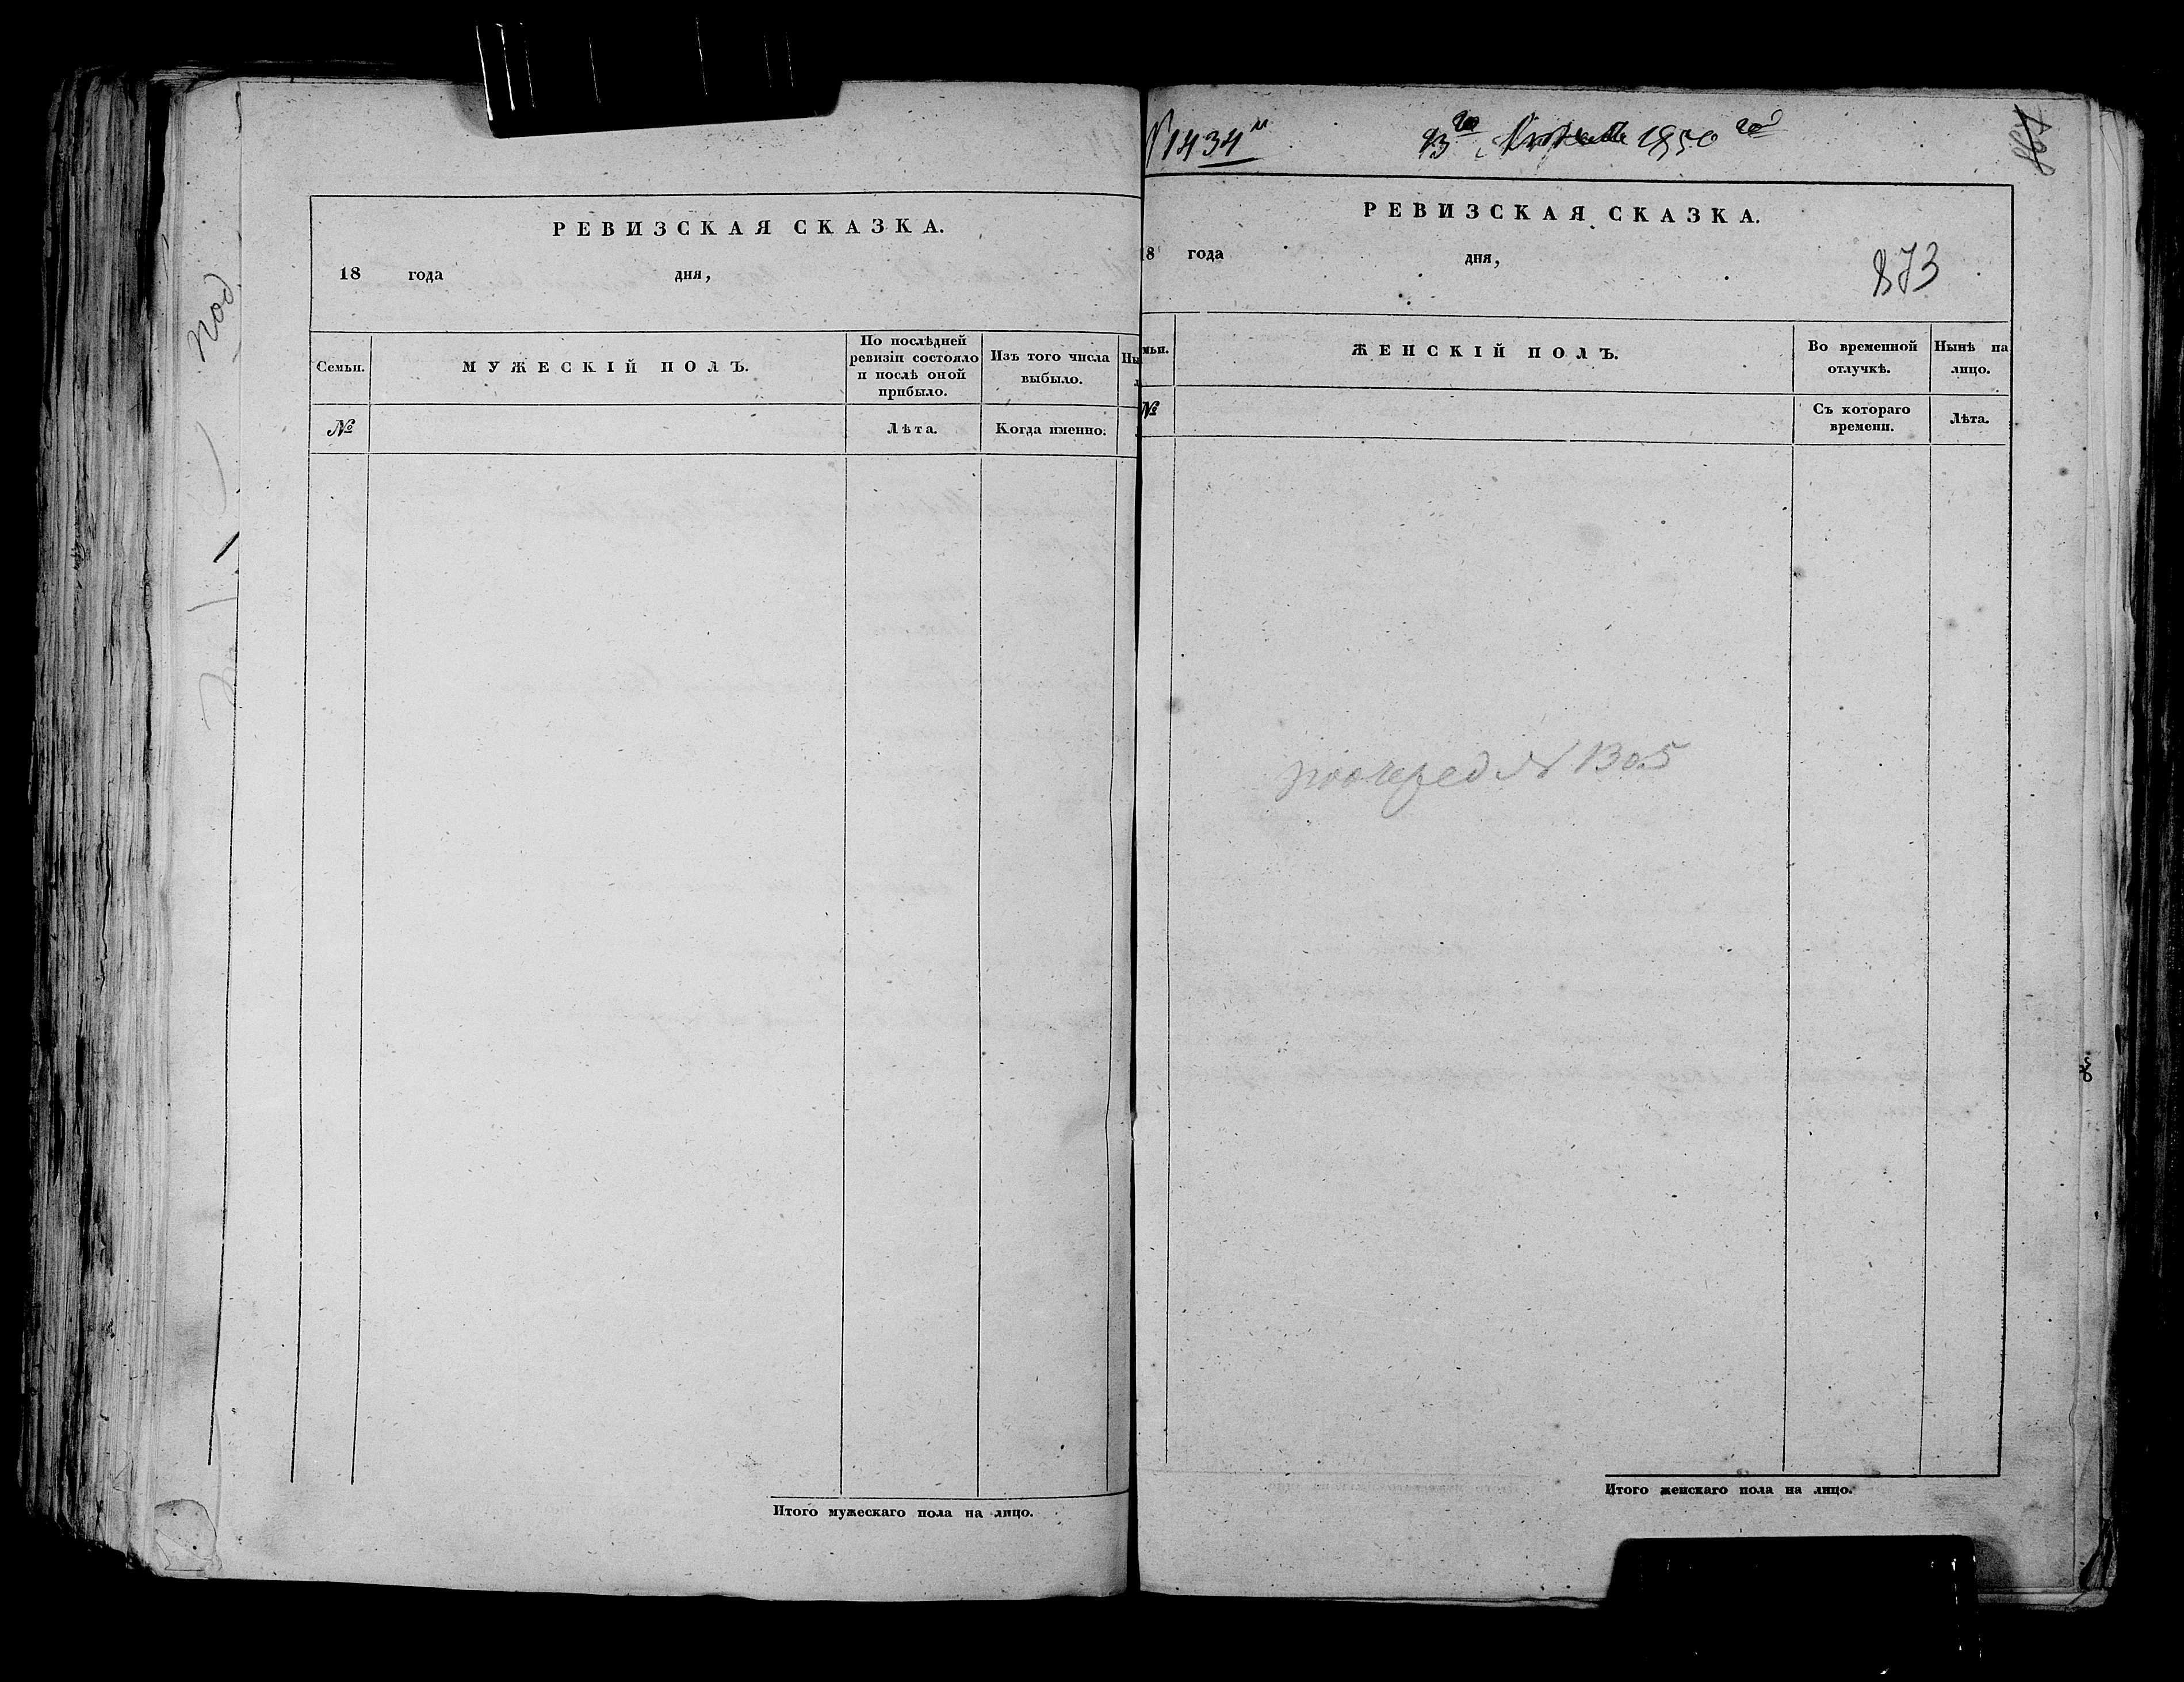 РЕВИЗСКАЯ СКАЗКА.
18 года дня,
Семьи.
МУЖЕСКІЙ ПОЛЪ.
По послѣдней
ревизіи состояло
и послѣ оной
прибыло.
Изъ того числа
выбыло.
№
Лѣта.
Когда именно.
Итого мужескаго пола на лицо.
№ 1434
1850
РЕВИЗСКАЯ СКАЗКА.
18 года дня,
873
ЖЕНСКІЙ ПОЛЪ.
Во временной
отлучкѣ.
Нынѣ на
лицо.
№
Съ котораго
времени.
Лѣта.
№ 1305
Итого женскаго пола на лицо.